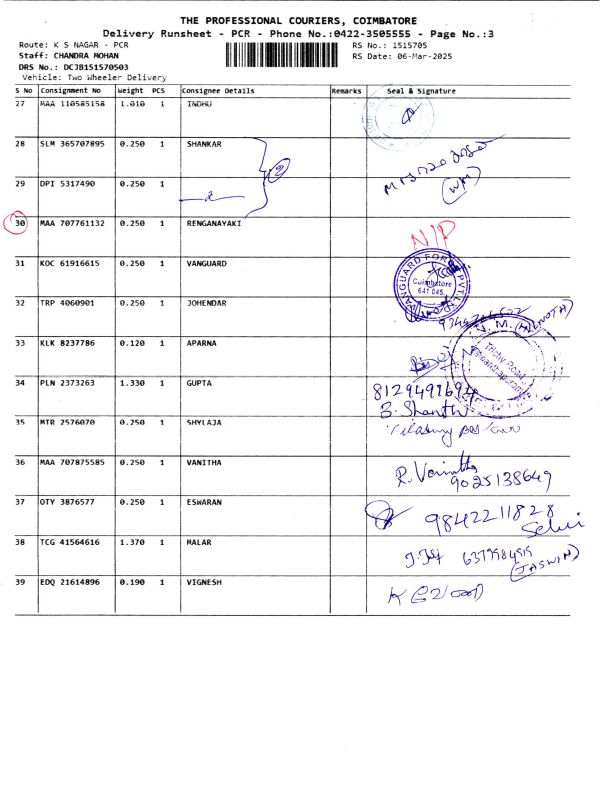 THE PROFESSIONAL COURIERS, COIMBATORE
Delivery Runsheet - PCR - Phone No.:0422-3505555 - Page No.:3
Route: K S NAGAR - PCR
RS No.: 1515705
Staff: CHANDRA MOHAN
RS Date: 06-Mar-2025
DRS No.: DCJB151570503
Vehicle: Two Wheeler Delivery
S No Consignment No Weight PCS Consignee Details Remarks Seal & Signature
27 MAA 110585158 1.010 1 INDHU
28 SLM 365707895 0.250 1 SHANKAR
29 DPI 5317490 0.250 1
30 MAA 707761132 0.250 1 RENGANAYAKI N/P
31 KOC 61916615 0.250 1 VANGUARD
VANGUARD FOR PVT LTD
Coimbatore
641 045
32 TRP 4060901 0.250 1 JOHENDAR
33 KLK 8237786 0.120 1 APARNA
Trichy Road
34 PLN 2373263 1.330 1 GUPTA
B. Shanthi
35 MTR 2576070 0.250 1 SHYLAJA
36 MAA 707875585 0.250 1 VANITHA R. Vanitha
9025138649
37 OTY 3876577 0.250 1 ESWARAN 9842211828
Selvi
38 TCG 41564616 1.370 1 MALAR
(JASWIN)
39 EDQ 21614896 0.190 1 VIGNESH